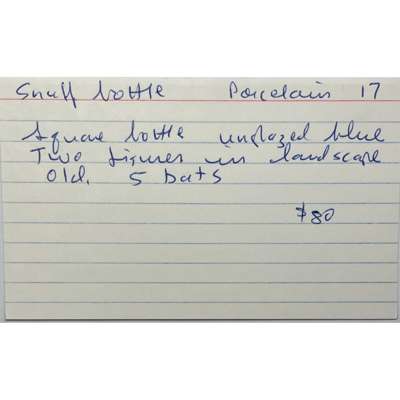 Snuff bottle Porcelain 17
Square bottle unglazed blue
Two figures in landscape
Old. 5 bats
$80